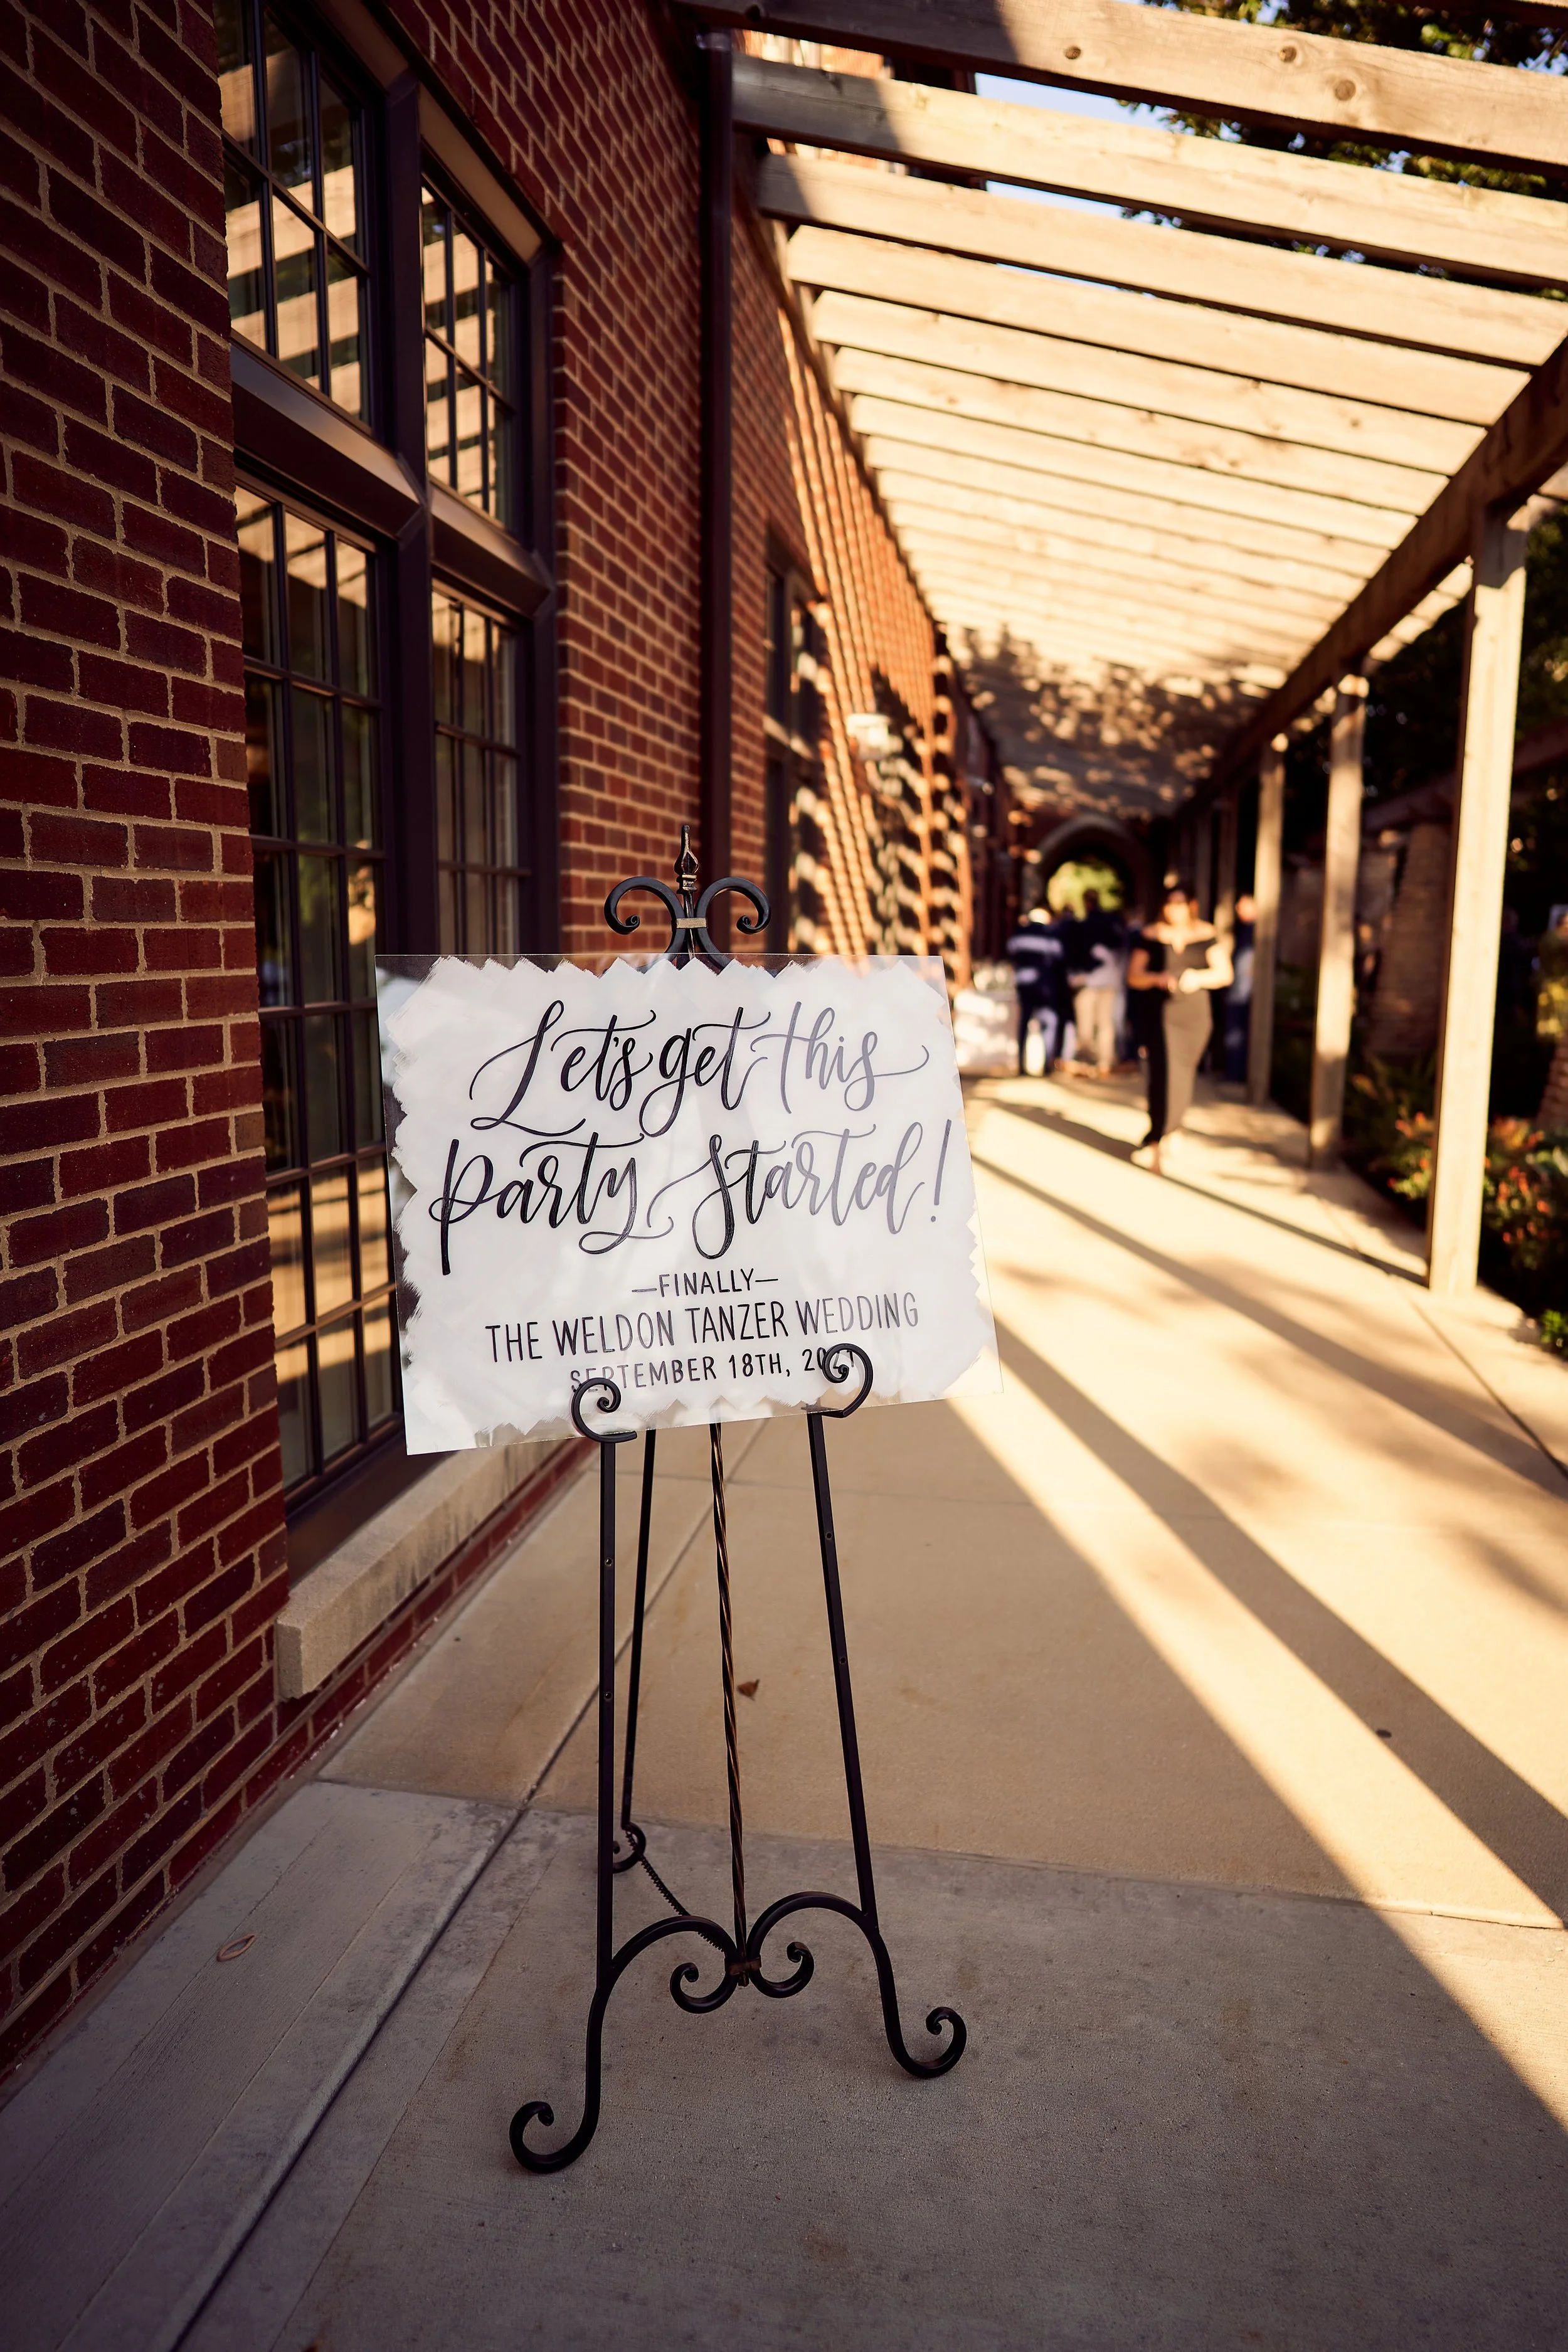 Let's get this
party started!
—FINALLY—
THE WELDON TANZER WEDDING
SEPTEMBER 18TH, 2021